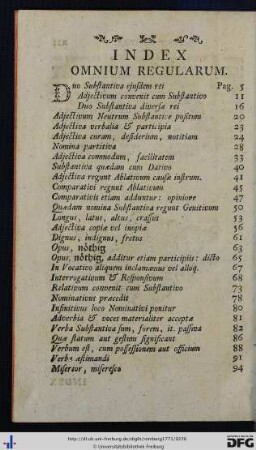 INDEX
OMNIUM REGULARUM.
Duo Substantiva ejusdem rei Pag. 5
Adjectivum convenit cum Substantivo 11
Duo Substantiva diversæ rei 16
Adjectivum Neutrum Substantive positum 20
Adjectiva verbalia & participia 23
Adjectiva curam, desiderium, notitiam 24
Nomina partitiva 28
Adjectiva commodum, facilitatem 33
Substantiva quædam cum Dativo 40
Adjectiva regunt Ablativum causæ instrum. 41
Comparativi regunt Ablativum 45
Comparativis etiam adduntur: opinione 47
Quædam nomina Substantiva regunt Genitivum 50
Longus, latus, altus, crassus 53
Adjectiva copiæ vel inopiæ 56
Dignus, indignus, fretus 61
Opus, nöthig 63
Opus, nöthig, additur etiam participiis: dicto 65
In Vocativo aliquem inclamamus vel alloq. 67
Interrogativum & Responsivum 68
Relativum convenit cum Substantivo 73
Nominativus præcedit 78
Infinitivus loco Nominativi ponitur 80
Adverbia & voces materialiter accepta 81
Verba Substantiva sum, forem, it. passiva 82
Quæ statum aut gestum significant 86
Verbum est, cum possessionem aut officium 88
Verba æstimandi 91
Misereor, miseresco 94
http://dl.ub.uni-freiburg.de/diglit/romberg1773/0016
© Universitätsbibliothek Freiburg
gefördert durch die
DFG